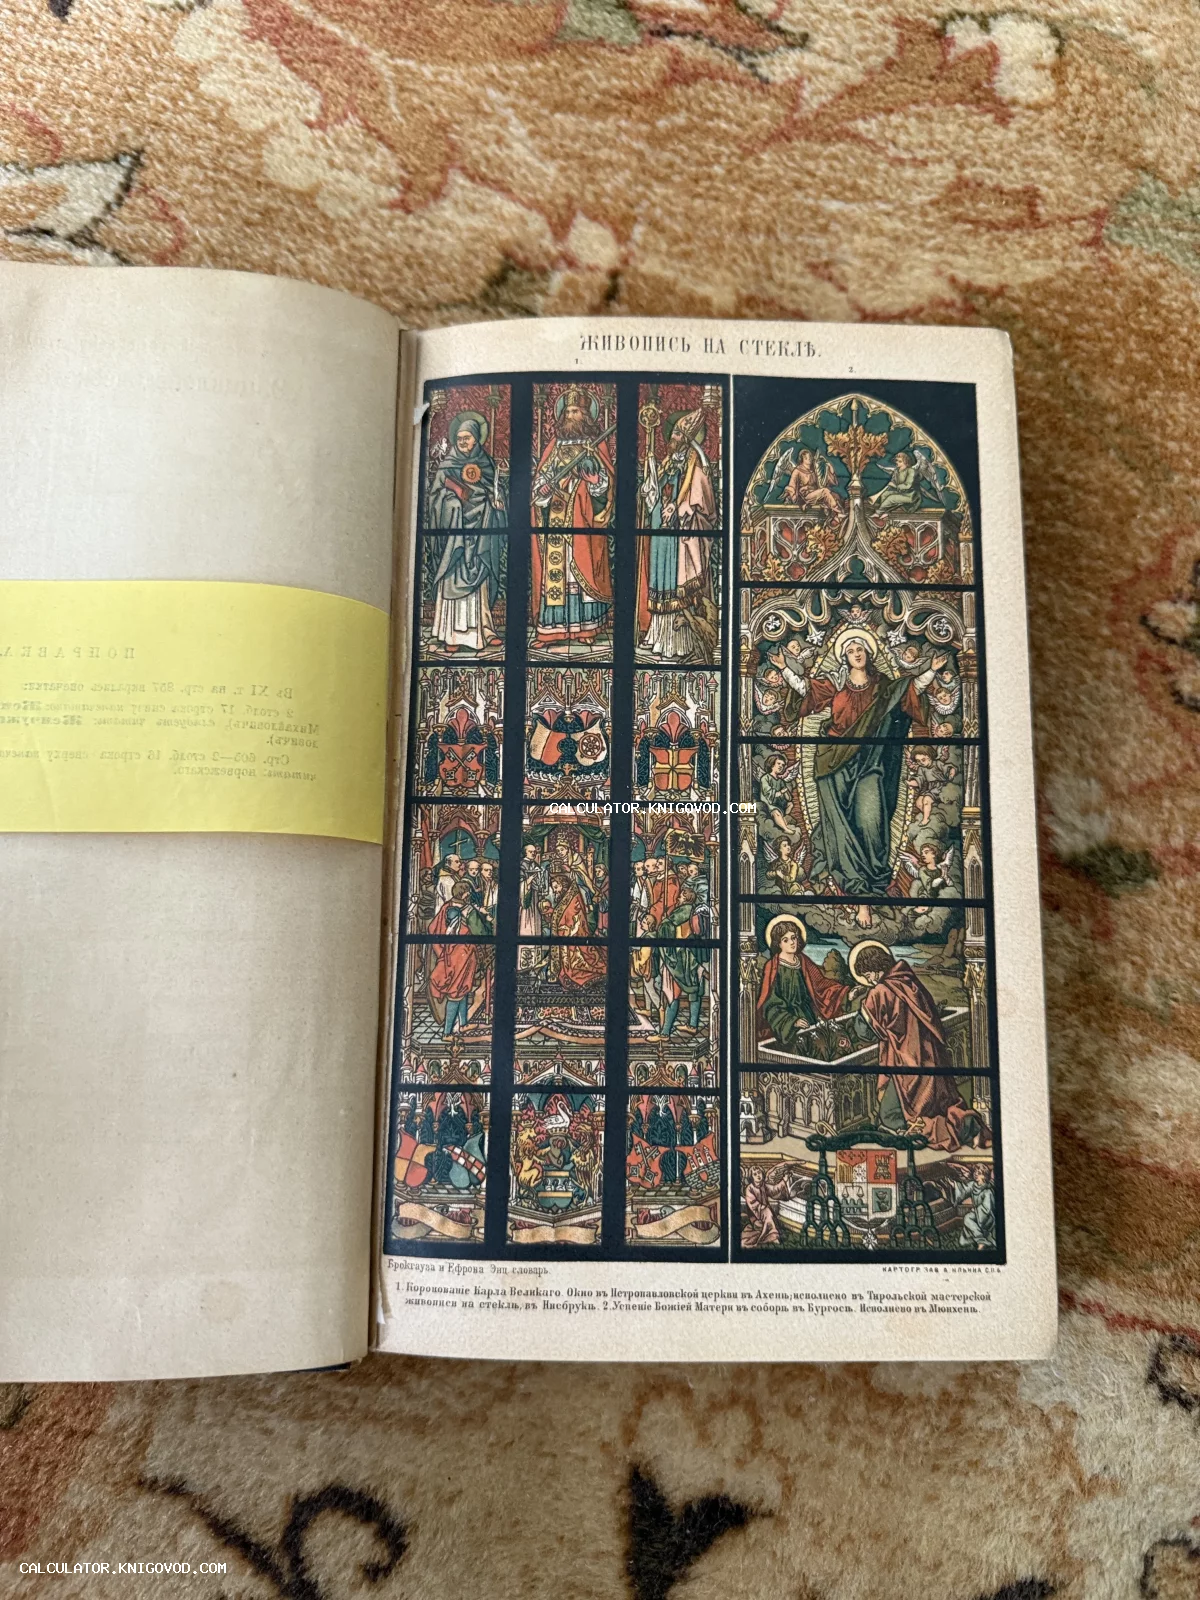 ЖИВОПИСЬ НА СТЕКЛѢ.
1.
2.
ПОПРАВКА
Въ XI т. на стр. 857 вкрались опечатки:
2 столб. 17 строка снизу
Михайловичъ), слѣдуетъ читать:
ловичъ).
Стр. 605—2 столб. 16 строка сверху
читать: норвежскаго.
CALCULATOR.KNIGOVOD.COM
Брокгауза и Ефрона Энц. словарь.
КАРТОГР. ЗАВ. А. ИЛЬИНА С.П.Б.
1. Коронованіе Карла Великаго. Окно въ Петропавловской церкви въ Ахенѣ; исполнено въ Тирольской мастерской
живописи на стеклѣ, въ Инсбрукѣ. 2. Успеніе Божіей Матери въ соборѣ въ Бургосѣ. Исполнено въ Мюнхенѣ.
CALCULATOR.KNIGOVOD.COM